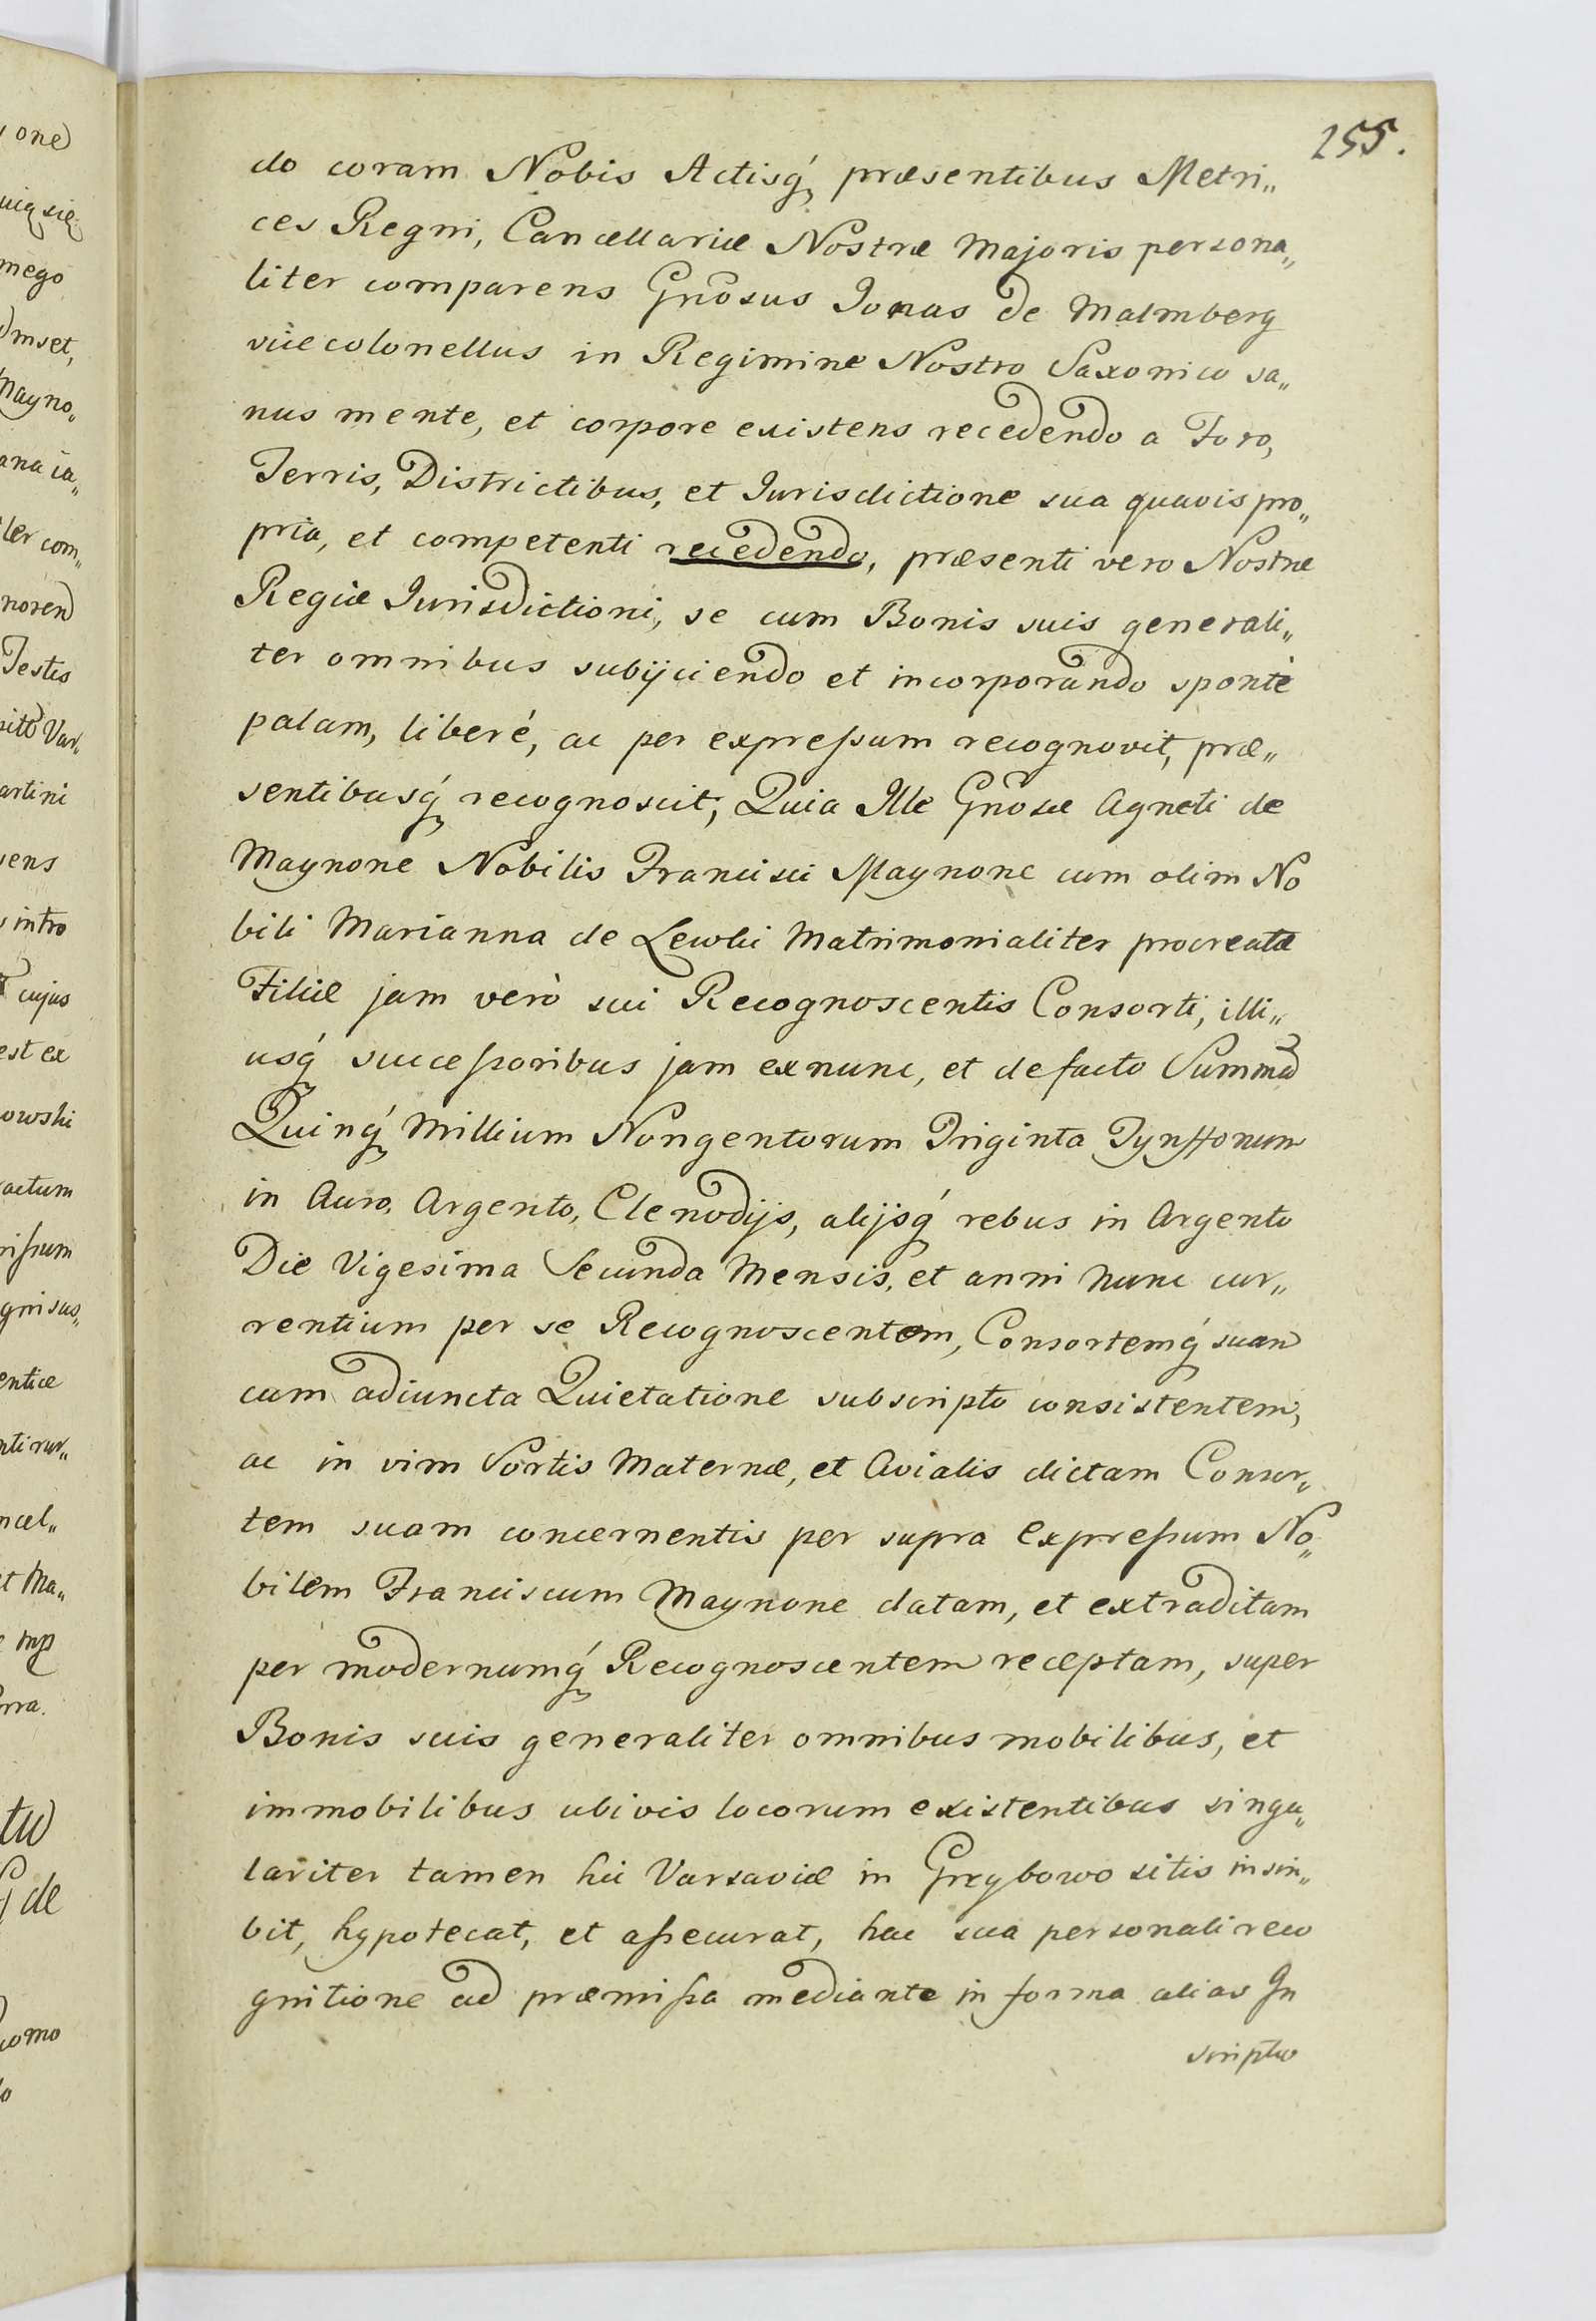 255.
do coram Nobis Actisq́ præsentibus Metri„
ces Regni, Cancellariæ Nostræ Majoris persona„
liter comparens Gnosus Jonas de Malmberg
vicecolonellus in Regimine Nostro Saxonico sa„
nus mente, et corpore existens recedendo a Foro,
Terris, Districtibus, et Jurisdictione sua quavis pro„
pria, et competenti recedendo, præsenti vero Nostræ
Regiæ Jurisdictioni, se cum Bonis suis generali„
ter omnibus subijciendo et incorporando sponte
palam, liberé, ac per expressum recognovit, præ„
sentibusq́ recognoscit, Quia Ille Gnosæ Agneti de
Maynone Nobilis Francisci Maynone cum olim No
bili Marianna de Lewhi Matrimonialiter procreatæ
Filiæ jam verò sui Recognoscentis Consorti, illi„
usq́ successoribus jam exnunc, et de facto Summam
Quinq́ Millium Nongentorum Triginta Tynffonum
in Auro, Argento, Clenodijs, alijsq́ rebus in Argento
Die Vigesima Secunda Mensis, et anni nunc cur„
rentium per se Recognoscentem, Consortemq́ suam
cum adiuncta Quietatione subscripto consistentem,
ac in vim Sortis Maternæ, et Avialis dictam Consor„
tem suam concernentis per supra expressum No„
bilem Franciscum Maynone datam, et extraditam
per modernumq́ Recognoscentem receptam, super
Bonis suis generaliter omnibus mobilibus, et
immobilibus ubivis locorum existentibus singu„
lariter tamen hic Varsaviæ in Grzybowo sitis inscri„
bit, hypotecat, et assecurat, hac sua personali reco
gnitione ad præmissa mediante in forma alias In
scriptio